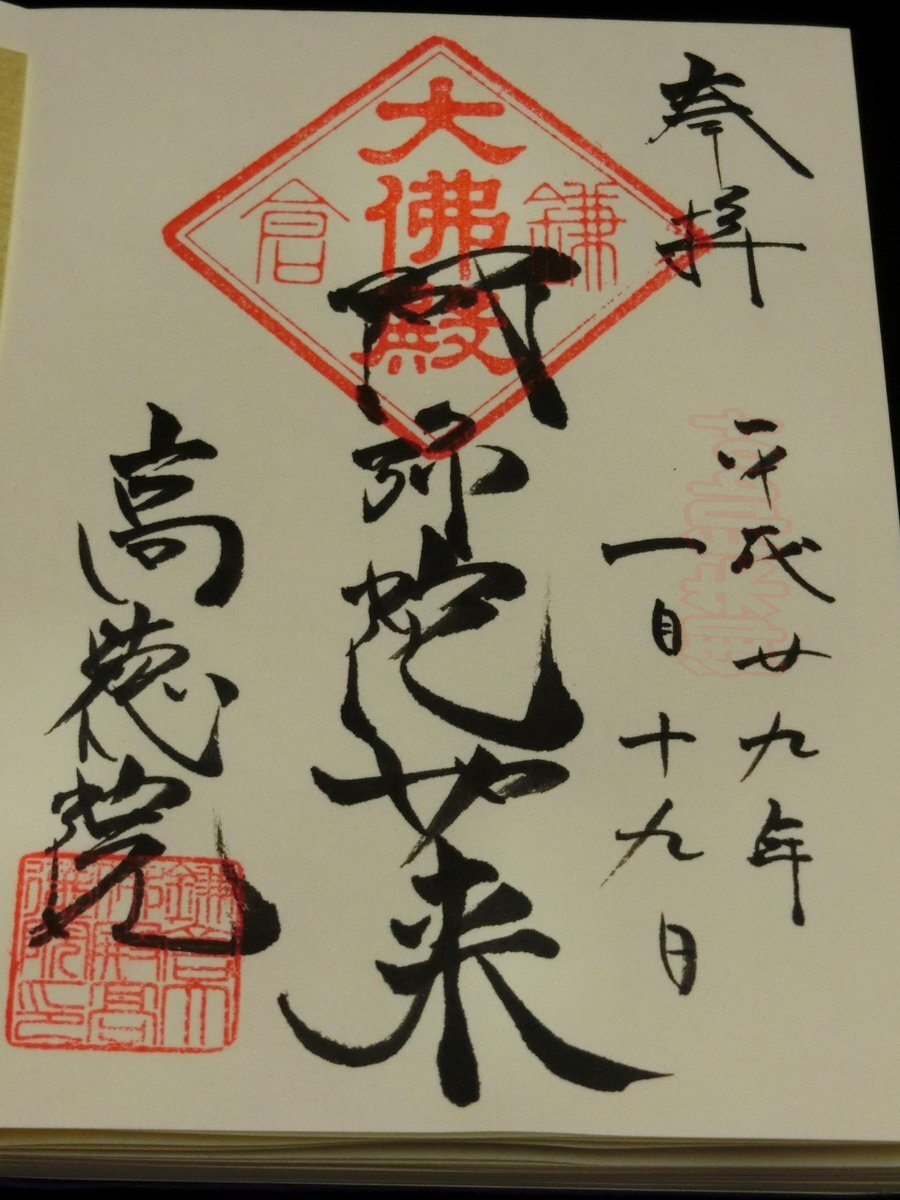 奉拝
平成廿九年
一月十九日
鎌倉
大佛殿
阿弥陀如来
高徳院